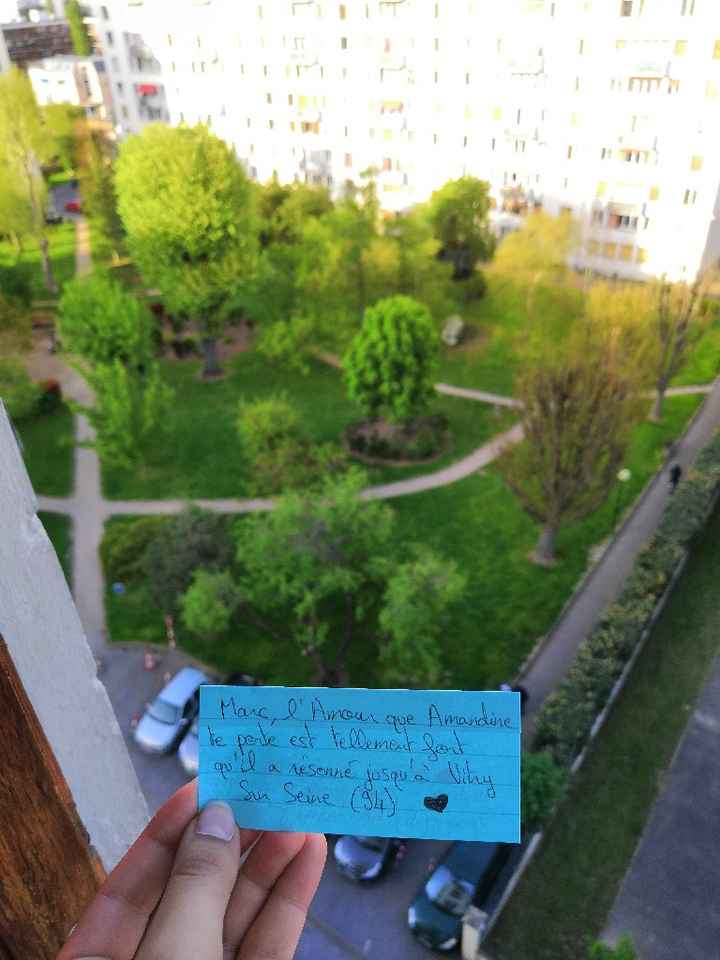 Marc, l'Amour que Amandine
te porte est tellement fort
qu'il a résonné jusqu'à Vitry
Sur Seine (94) ♥